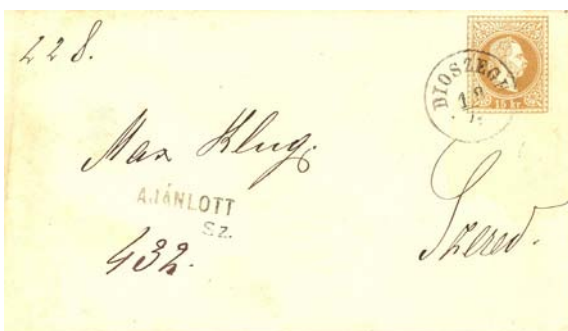 228.
DIOSZEGH
15 kr.
Max Klug.
AJÁNLOTT
Sz.
432.
Szered.